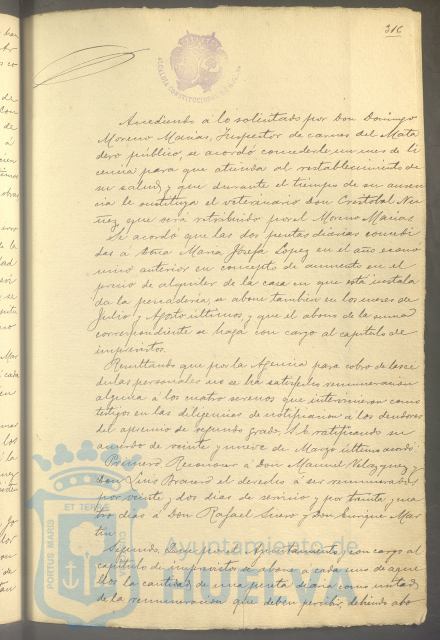 316
ALCALDIA CONSTITUCIONAL
Accediendo á lo solicitado por Don Domingo
Moreno Macias, Inspector de carnes del Mata
dero público, se acordó concederle un mes de li
cencia para que atienda al restablecimiento de
su salud, y que durante el tiempo de su ausen
cia le sustituya el veterinario Don Cristobal Nu
ñez que será retribuido por el Moreno Macias.
Se acordó que las dos pesetas diarias concedi
das á Doña Maria Josefa Lopez en el año econo
mico anterior en concepto de aumento en el
precio de alquiler de la casa en que está instala
da la pescadería, se abone tambien en los meses de
Julio y Agosto ultimos, y que el abono de la suma
correspondiente se haga con cargo al capitulo de
imprevistos.
Resultando que por la Agencia para cobro de las ce
dulas personales no se ha satisfecho remuneracion
alguna á los cuatro serenos que intervinieron como
testigos en las diligencias de notificacion á los deudores
del apremio de segundo grado, S.E. ratificando su
acuerdo de veinte y nueve de Marzo último acordó:
Primero. Reconocer á Don Manuel Velazquez y
Don Luis el derecho á ser remunerados
por veinte y dos dias de servicio y por treinta y
dias á Don Rafael y Don Enrique Mar
tin.
Segundo. Que por el Ayuntamiento y con cargo al
capitulo de imprevistos se abone á cada uno de aque
llos la cantidad de una peseta diaria como mitad
de la remuneracion que deben percibir, debiendo abo
PORTUS MARIS
ET TERRE
Ayuntamiento de
HUELVA